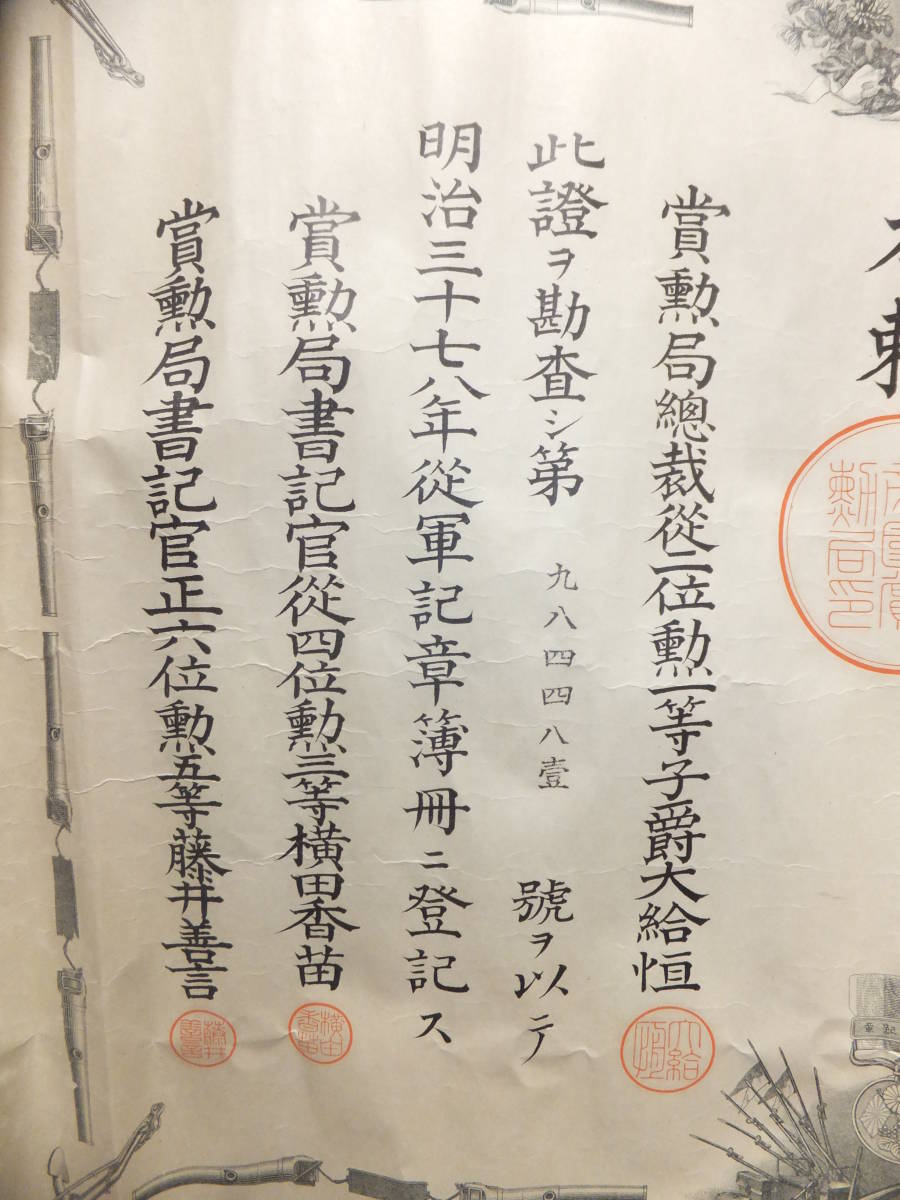 賞勲局總裁從二位勲一等子爵大給恒
此證ヲ勘査シ第九八四四八壹號ヲ以テ
明治三十七八年從軍記章簿冊ニ登記ス
賞勲局書記官從四位勲三等横田香苗
賞勲局書記官正六位勲五等藤井善言
大給恒
横田香苗
藤井善言